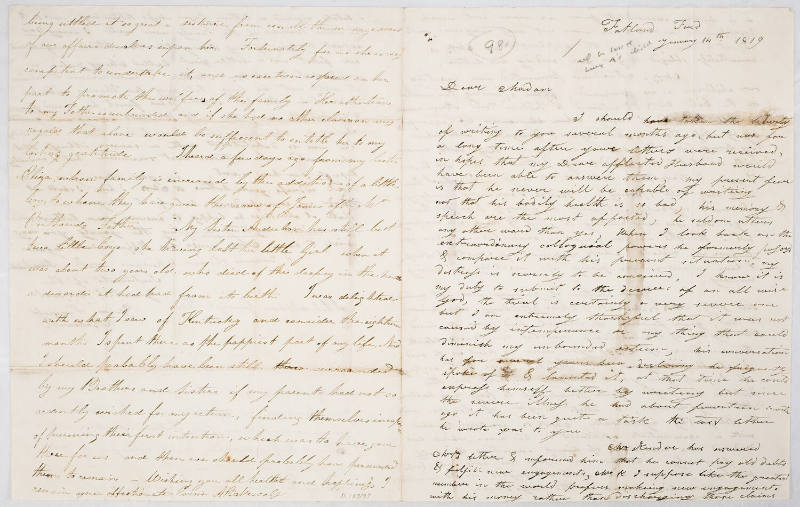 Fatland Ford
January 14th 1819
98
Dear Madam
I should have taken the liberty
of writing to you several months ago, but was for
a long time after your letters were received,
in hopes that my Dear afflicted Husband would
have been able to answer them, my present fear
is that he never will be capable of writing
not that his bodily health is so bad his memory &
speech are the most affected, he seldom utters
any other word than yes, When I look back on the
extraordinary colloquial powers he formerly possess'd
& compare it with his present situation, my
distress is scarcely to be conceived, I know it is
my duty to submit to the decrees of an all wise
God, the trial is certainly a very severe one
but I am extremely thankful that it was not
caused by intemperance or any thing that could
diminish my unbounded esteem, his conversation
has for several years been he frequently
spoke of it & lamented it, at that time he could
express himself better by writing but since
the seventeen months
ago it has been quite a task the last letter
he wrote was to you
has answered
letter & informed him that he cannot pay old debts
& fulfill new engagements, I suppose like the greatest
number in the world prefers making new engagements
with his money rather than discharging those claims
being settled at so great a distance from us all the management
of our affairs devolves upon him Fortunately for us she is very
competent to undertake it, and no exertion is spared on her
part to promote the welfare of the family - Her attentions
to my Father are unbounded and if she had no other claim on my
regards that alone would be sufficient to entitle her to my
lasting gratitude I heard a few days ago from my sister
Eliza whose family is increased by the addition of a little
boy to whom they have given the name of James after
Husbands Father My Sister Audubon has still but
two little boys she
was about two years old, who died of the dropsy in the head
a disorder it had had from its birth I was delighted
with what I saw of Kentucky and consider the eighteen
months I spent there as the happiest part of my life. And
I should probably have been still there surrounded
by my Brothers and Sisters if my parents had not so
ardently wished for my return, finding themselves incapable
of pursuing their first intention, which was to have gone
there for us and there we should probably have persuaded
them to remain - Wishing you all health and happiness I
remain your affectionate Cousin A Bakewell